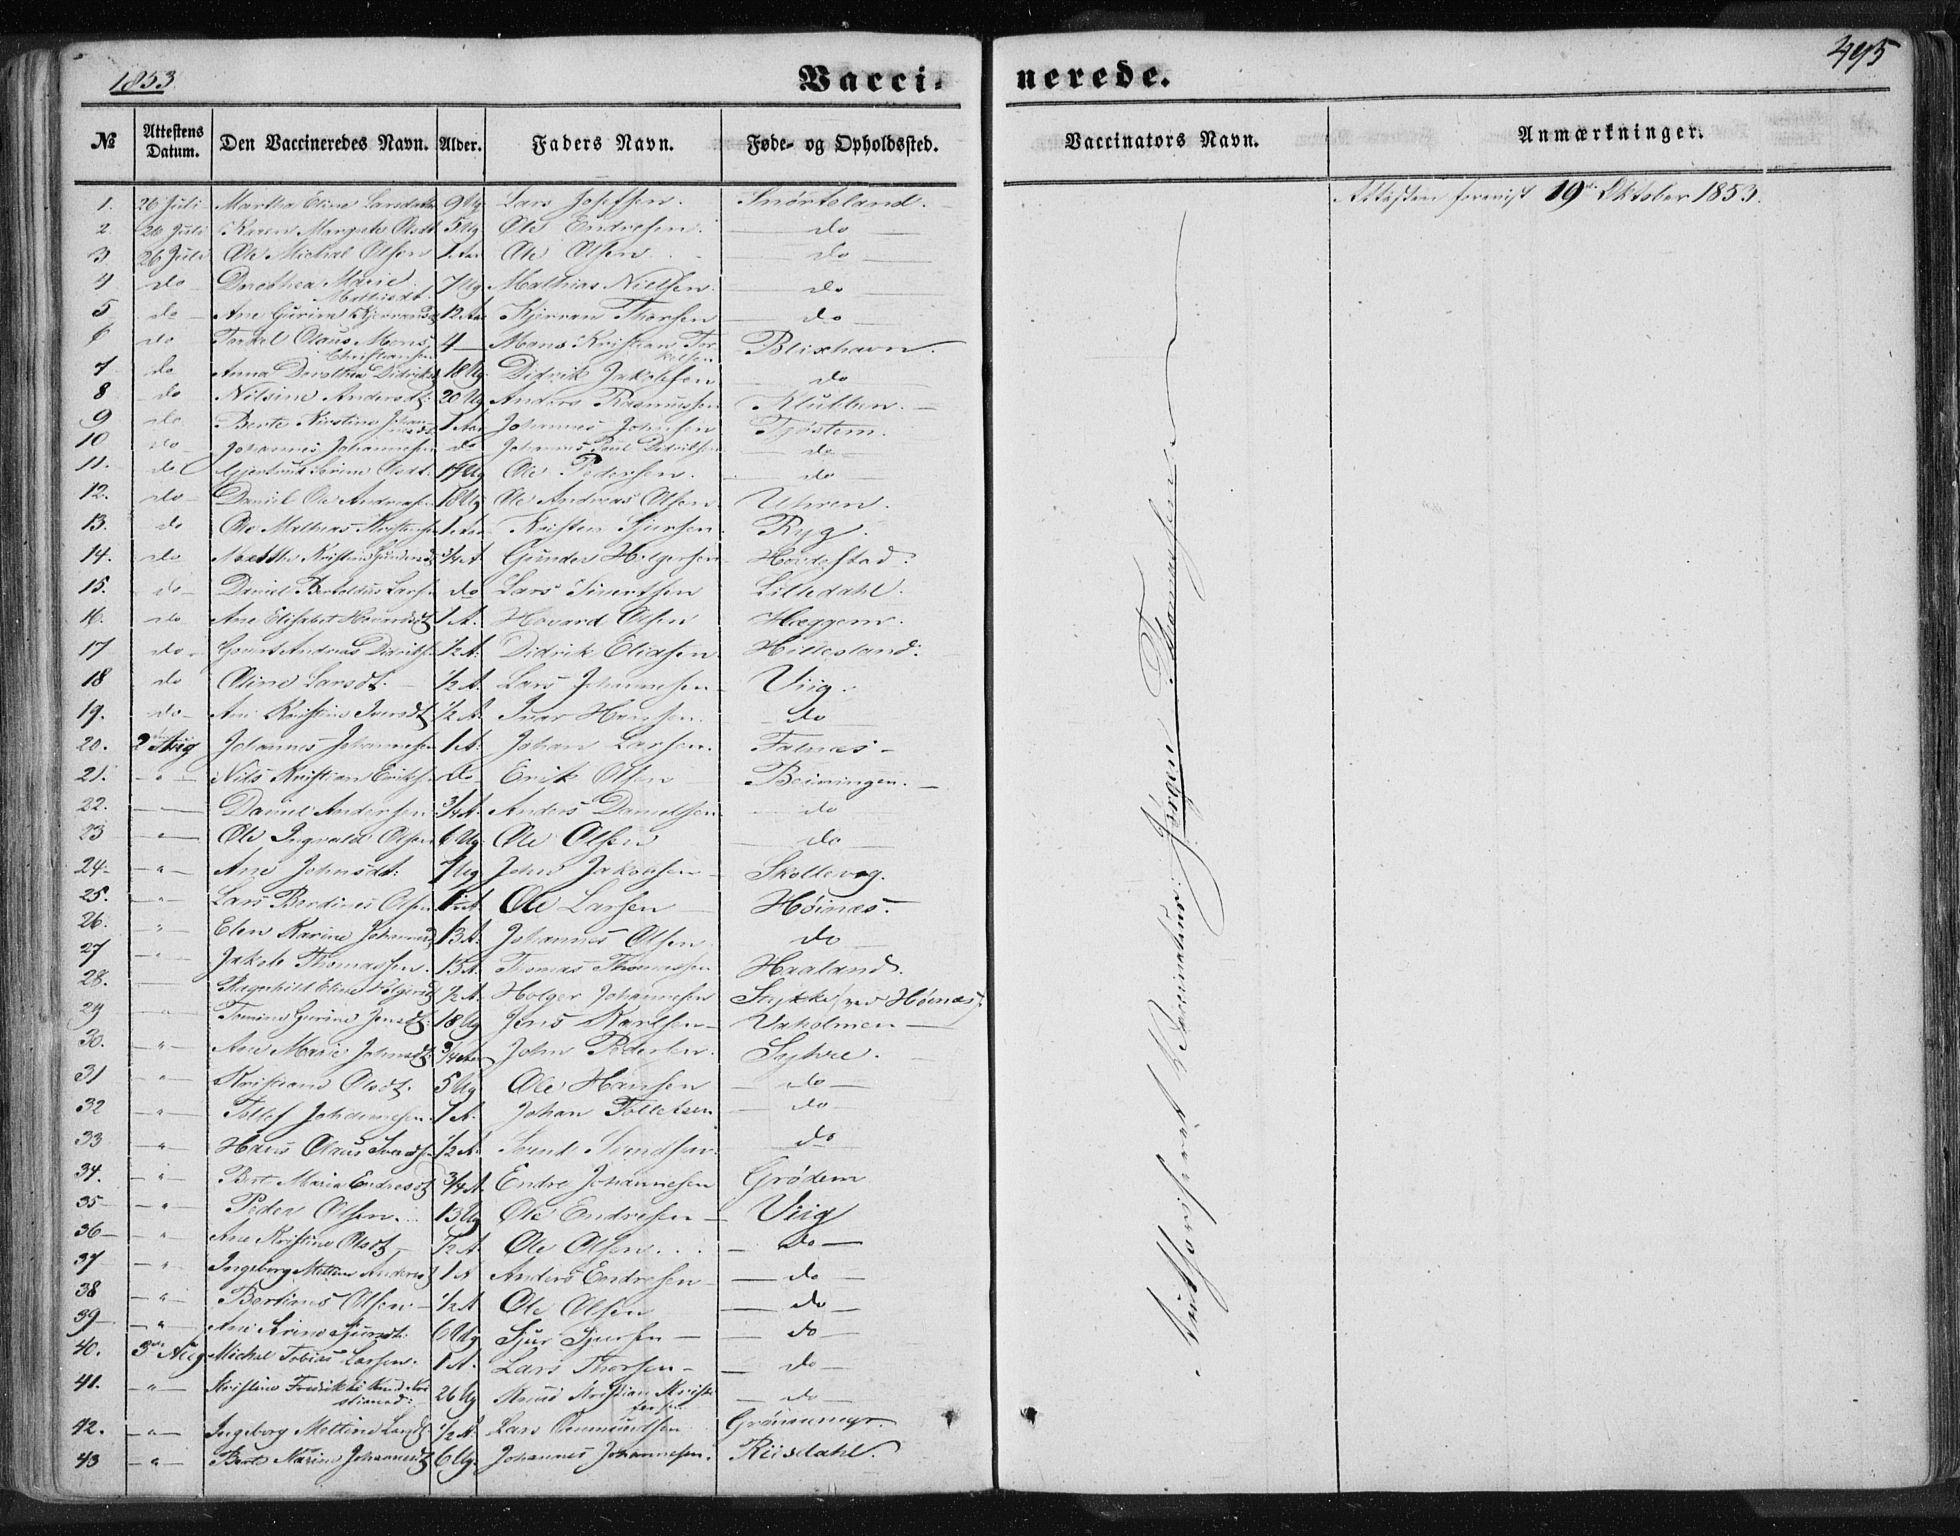 1853
Vacci-
nerede.
495
№ Attestens Datum. Den Vaccineredes Navn. Alder. Faders Navn. Føde- og Opholdssted. Vaccinators Navn. Anmærkninger.
1. 26 Juli Martha Eline Larsdatter 9 Ug Lars Joseffsen. Snørteland. Attesten forevist 19de Oktober 1853.
2. 26 Juli Karen Margete Olsdt 5 Ug Ole Endresen. do
3 26 Juli Ole Michal Olsen 1 Aar Ole Olsen do
4 do Dorothea Marie Mathiasdt. 7 Ug Mathias Nielsen. do
5 do Ane Gurine Kjerransd 12 Aar Kjerran Thorsen do
6 do Torkel Olaus Mons Christiansen 4 Mons Kristian Torkelsen Blixhavn.
7 do Anna Dorothea Didriksd 18 Ug Didrik Jakobsen do
8 do Nilsine Andersdt. 20 Ug Anders Rasmussen Klutten.
9 do Berte Kirstine Johannesdt 1 Aar Johannes Johnsen Tjøstem.
10 do Johannes Johannesen do Johannes Poul Didriksen do
11. do Gjertrud Serine Olsdt. 14 Ug Ole Pedersen. do
12. do Daniel Ole Andreasen 18 Ug Ole Andreas Olsen Uhren.
13. do Ole Mathias Kristensen 1 Aar Kristen Sjursen Ryg.
14. do Marthe Kristine Gundersdt 3/4 A. Gunder Holgersen Hovdestad.
15. do Daniel Bertoldus Lars. do Lars Sivertsen Lilledahl.
16. do Ane Elisabet Havardsdt 1 A. Havard Olsen Hæggem.
17 do Govert Andreas Didriks. 1/2 A. Didrik Eliasen Hillesland.
18 do Oline Larsdt. 1/2 A. Lars Johannesen Viig.
19. do Ane Kristine Iversdt 1/2 A. Ivar Hansen. do
20. 2 Aug Johannes Johannesen 1 A. Johan Larsen. Falnæs
21. " Nils Kristian Eriksen do Erik Olsen Beiningen.
22. Daniel Andersen 3/4 A. Anders Danielsen do
23 " Ole Ingvald Olsen 6 Ug Ole Olsen do
24 " Ane Johnsdt. 7 Ug John Jakobsen Skollevog.
25. " Lars Berdines Olsen 1 1/2 A Ole Larsen Høinæs.
26. " Elen Karine Johannesd 13 A. Johannes Olsen do
27 " Jakob Thomassen. 13 A. Tomas Thomassen Haaland.
28. Ragnhild Eline Holgersd 1/2 A. Holger Johannesen Stykke ved Høinæs
29 " Tomine Gurine Jensdt. 18 Ug Jens Karlsen Vakolmen
30. " Ane Marie Johnsdt 3/4 Aar John Pedersen. Syhve.
31 " Kristiane Olsdt. 5 Ug Ole Hansen do
32 " Tollef Johannesen 1 A. Johan Tollefsen do
33 " Hans Olaus Svends. 1/2 A. Svend Svendsen. do
34. " Bert Maria Endresdt 3/4 A. Endre Johannesen Grødem
35 " Peder Olsen. 13 Ug Ole Endresen Viig
36 " Ane Kristine Olsdt 1/2 A. Ole Olsen. do
37 " Ingeborg Mettine Andersd 1 A Anders Endresen do
38 " Berdines Olsen 1/2 A Ole Olsen do
39 " Ane Serine Sjursdt. 6 Ug Sjur Sjursen do
40. 3de Aug Michel Tobias Larsen. 1 A. Lars Thorsen do
41. " Kristine Fredrikke Knud Kristiansd: 26 Ug Knud Kristian Kristoffersen do
42. " Ingeborg Mettine Larsdt. 1/2 A. Lars Omundsen Grønnmyr.
43 " Berte Karine Johannesdt 6 Ug. Johannes Johannesen. Riisdahl.
Authoriseret Vaccinatur: Jørgen Thomassen